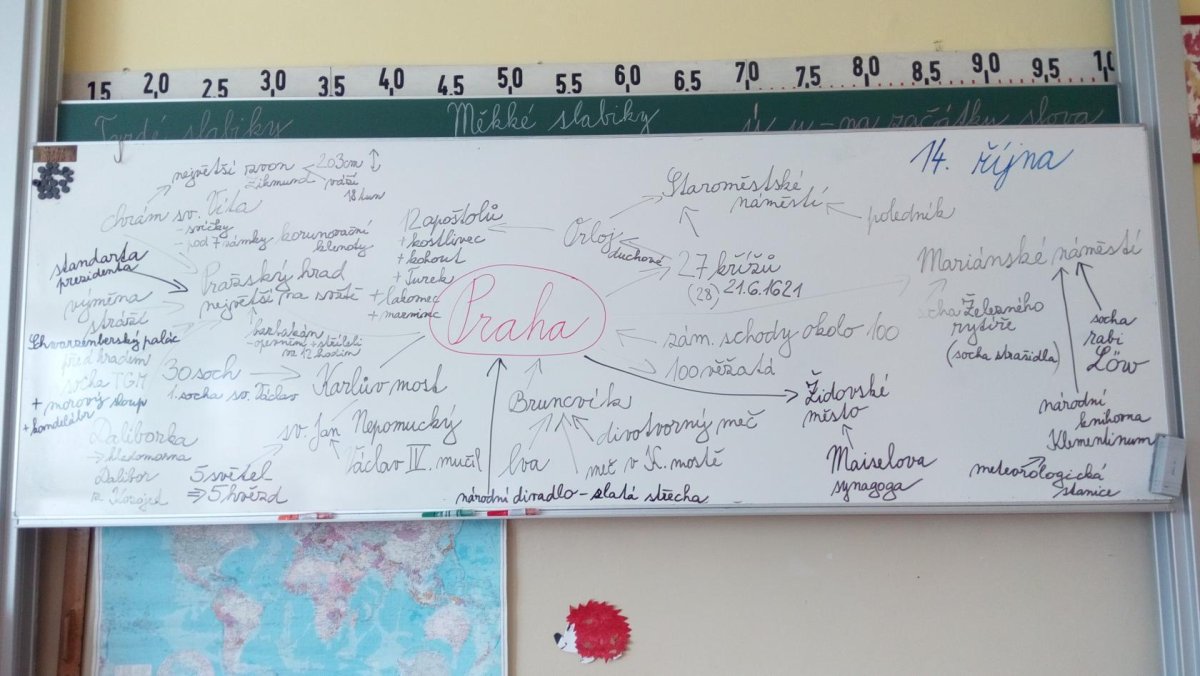 1.5 2,0 2.5 3,0 3.5 4,0 4.5 5,0 5.5 6,0 6.5 7,0 7,5 8,0 8,5 9,0 9,5 1,0
Tvrdé slabiky
Měkké slabiky
ú - na začátku slova
14. října
největší zvon
Zikmund
203cm
váží
18 tun
chrám sv. Víta
- svíčky
- pod 7 zámky korunovační
klenoty
standarta
prezidenta
Pražský hrad
největší na světě
výměna
stráží
Schwarzenberský palác
před hradem
socha TGM
+ morový sloup
+ kandelábr
barbakán
opevnění + stříleli
na 12 hodin
30 soch
1. socha sv. Václav
Karlův most
Daliborka
hladomorna
Dalibor
z Kozojed
sv. Jan Nepomucký
5 světel
⇒ 5 hvězd
Václav IV. mučil
12 apoštolů
+ kostlivec
+ kohout
+ Turek
+ lakomec
+ marnivec
Orloj
duchové
Staroměstské
náměstí
poledník
27 křížů
(28) 21.6.1621
Praha
zám. schody okolo 100
100 věžatá
Bruncvík
lva
divotvorný meč
meč v K. mostě
národní divadlo - zlatá střecha
Židovské
město
Maiselova
synagoga
Mariánské náměstí
socha Železného
rytíře
(socha strašidla)
socha
rabi
Löw
národní
knihovna
Klementinum
meteorologická
stanice